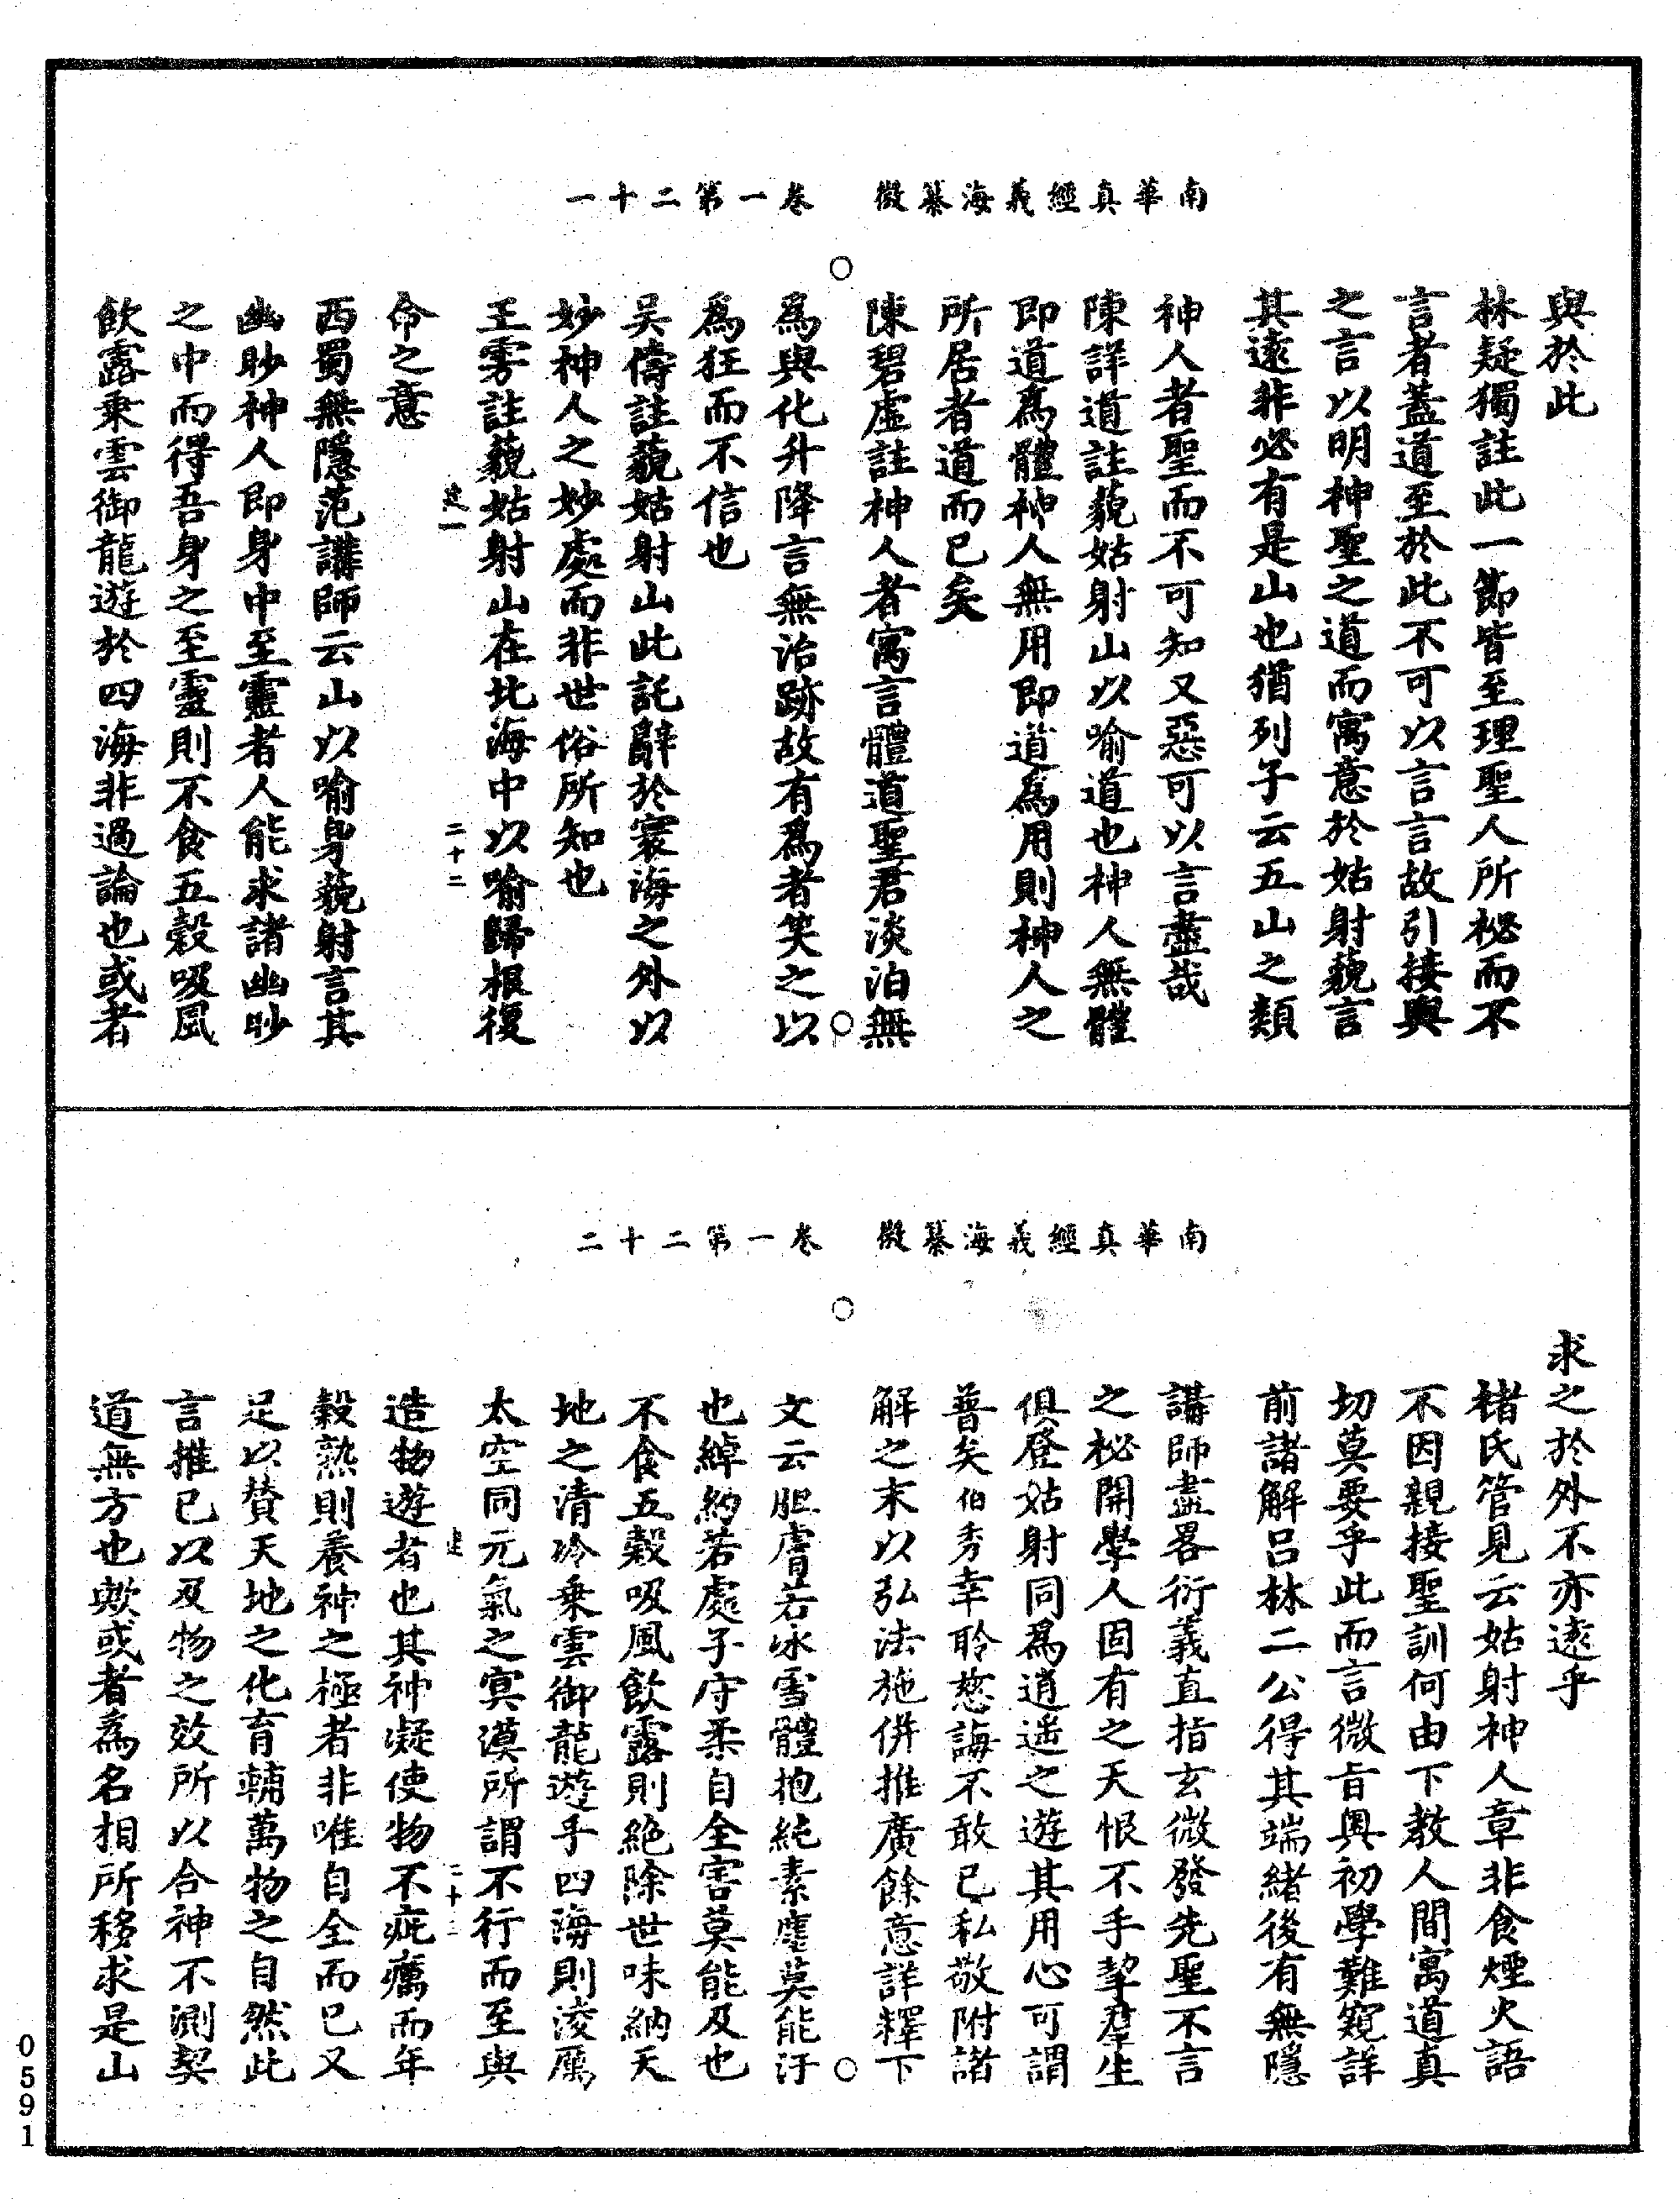 南華真經義海纂微　卷一第二十一
與於此
林疑獨註此一節皆至理聖人所祕而不
言者蓋道至於此不可以言言故引接輿
之言以明神聖之道而寓意於姑射藐言
其遠非必有是山也猶列子云五山之類
神人者聖而不可知又惡可以言盡哉
陳詳道註藐姑射山以喻道也神人無體
即道爲體神人無用即道爲用則神人之
所居者道而已矣
陳碧虛註神人者寓言體道聖君淡泊無
爲與化升降言無治跡故有爲者笑之以
爲狂而不信也
吴儔註藐姑射山此託辭於寰海之外以
妙神人之妙處而非世俗所知也
王雱註藐姑射山在北海中以喻歸根復
建一　二十二
命之意
西蜀無隱范講師云山以喻身藐射言其
幽眇神人即身中至靈者人能求諸幽眇
之中而得吾身之至靈則不食五穀吸風
飲露乘雲御龍遊於四海非過論也或者
南華真經義海纂微　卷一第二十二
求之於外不亦遠乎
褚氏管見云姑射神人章非食煙火語
不因親接聖訓何由下教人間寓道真
切莫要乎此而言微旨奥初學難窺詳
前諸解吕林二公得其端緒後有無隱
講師盡畧衍義直指玄微發先聖不言
之祕開學人固有之天恨不手挈羣生
俱登姑射同爲逍遥之遊其用心可謂
普矣伯秀幸聆慈誨不敢已私敬附諸
解之末以弘法施併推廣餘意詳釋下
文云肌膚若冰雪體抱純素塵莫能汙
也綽約若處子守柔自全害莫能及也
不食五穀吸風飲露則絶除世味納天
地之清冷乘雲御龍遊乎四海則淩厲
太空同元氣之冥漠所謂不行而至與
建　二十三
造物遊者也其神凝使物不疵癘而年
穀熟則養神之極者非唯自全而已又
足以賛天地之化育輔萬物之自然此
言推已以及物之效所以合神不測契
道無方也歟或者爲名相所移求是山
0591